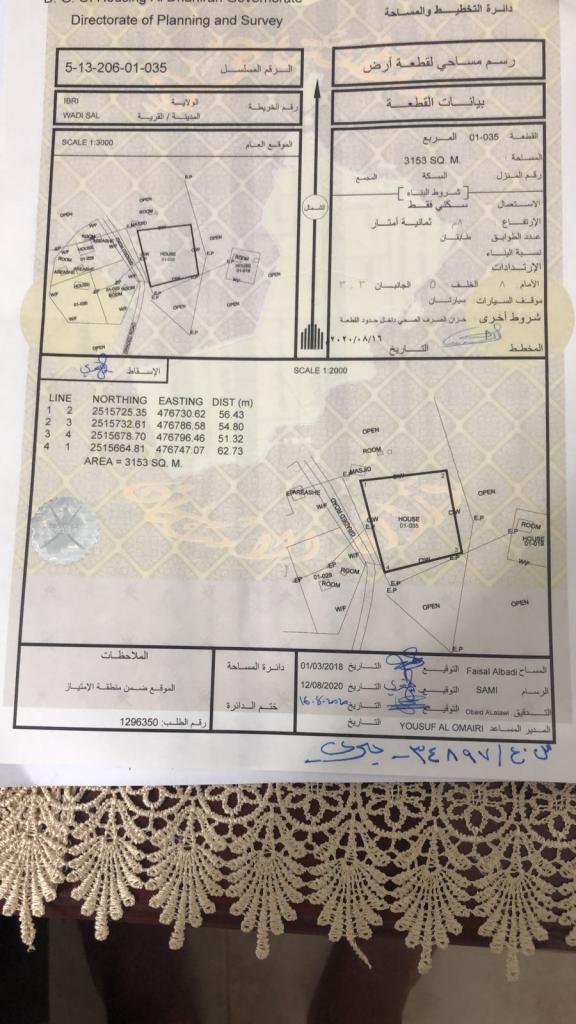 Directorate of Planning and Survey
دائرة التخطيط والمساحة
5-13-206-01-035 الرقم المسلسل
رسم مساحي لقطعة أرض
IBRI الولاية
WADI SAL المدينة / القرية
رقم الخريطة
بيانات القطعة
SCALE 1:3000 الموقع العام
القطعة 01-035 المربع
المساحة 3153 SQ. M.
رقم المنزل السكة المجمع
شروط البناء
الاستعمال سكني فقط
الإرتفاع ٨م ثمانية أمتار
عدد الطوابق طابقان
نسبة البناء
الإرتدادات
الأمام ٨ الخلف ٥ الجانبان ٣.٣
موقف السيارات سيارتان
شروط أخرى خزان الصرف الصحي داخل حدود القطعة
المخطط التاريخ ٢٠٢٠/٠٨/١٦
الشمال
E.P
OPEN
ROOM
MASJID
OPEN
HOUSE
01-035
OPEN
OPEN
E.P
OPEN
الإسقاط
SCALE 1:2000
LINE NORTHING EASTING DIST (m)
1 2 2515725.35 476730.62 56.43
2 3 2515732.61 476786.58 54.80
3 4 2515678.70 476796.46 51.32
4 1 2515664.81 476747.07 62.73
AREA = 3153 SQ. M.
OPEN
ROOM
E.P
MASJID
C/W
1
2
OPEN
AREASHE
W/F
GRADED ROAD
C/W
HOUSE
01-035
C/W
E.P
ROOM
HOUSE
01-018
W/F
E.P
3
C/W
E.P
4
E.P
W/F
E.P
01-028
ROOM
ROOM
E.P
W/F
OPEN
OPEN
E.P
الملاحظات
الموقع ضمن منطقة الإمتياز
رقم الطلب: 1296350
دائرة المساحة
ختم الدائرة
المساح Faisal Albadi التوقيع التاريخ 01/03/2018
الرسام SAMI التوقيع التاريخ 12/08/2020
التدقيق Obaid ALalawi التوقيع التاريخ 16.8.2020
المدير المساعد YOUSUF AL OMAIRI التاريخ
٣٤٨٩٧